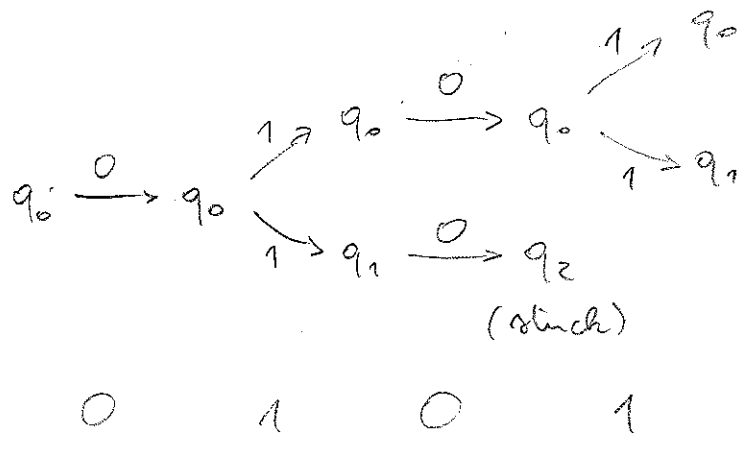 1 q₀
1 q₀ 0 q₀
q₀ 0 q₀ 1 q₁
1 q₁ 0 q₂
(stuck)
0 1 0 1